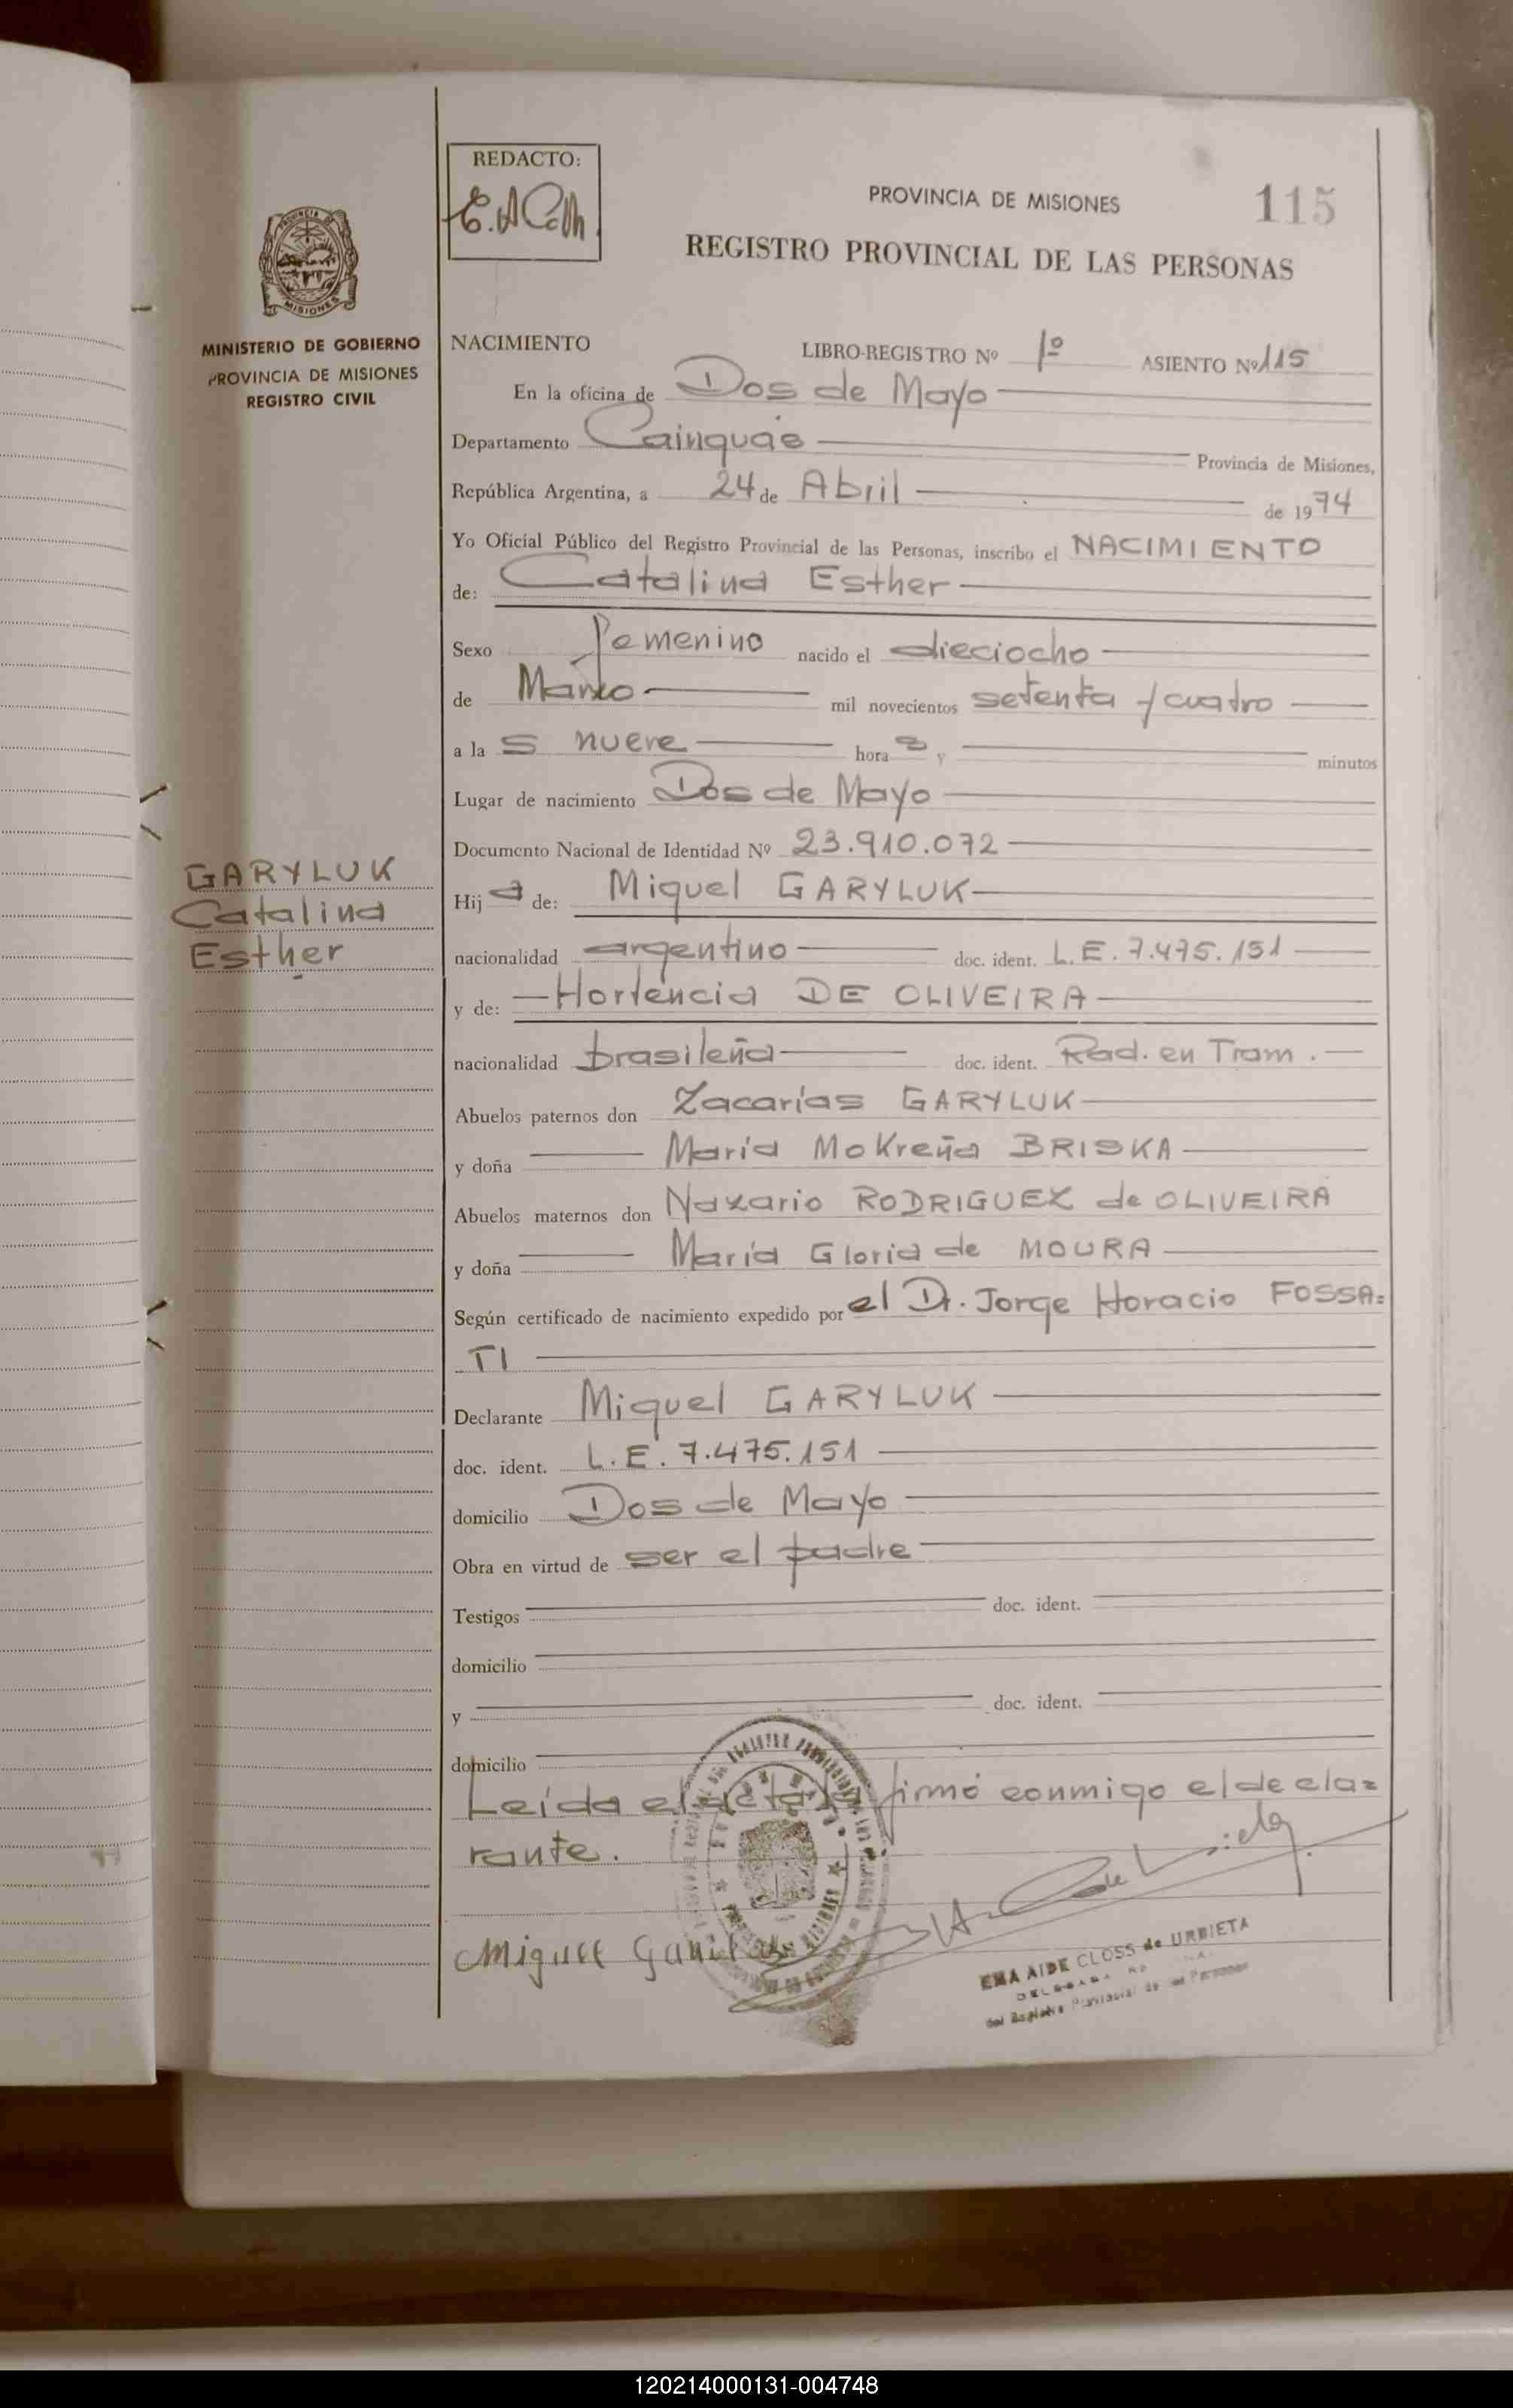 REDACTO:
PROVINCIA DE MISIONES
115
REGISTRO PROVINCIAL DE LAS PERSONAS
PROVINCIA DE
MISIONES
MINISTERIO DE GOBIERNO
PROVINCIA DE MISIONES
REGISTRO CIVIL
NACIMIENTO LIBRO-REGISTRO Nº 1º ASIENTO Nº 115
En la oficina de Dos de Mayo
Departamento Cainguás Provincia de Misiones,
República Argentina, a 24 de Abril de 1974
Yo Oficial Público del Registro Provincial de las Personas, inscribo el NACIMIENTO
de: Catalina Esther
Sexo femenino nacido el dieciocho
de Marzo mil novecientos setenta y cuatro
a la s nueve hora s y minutos
Lugar de nacimiento Dos de Mayo
Documento Nacional de Identidad Nº 23.910.072
GARYLUK
Catalina
Esther
Hij a de: Miguel GARYLUK
nacionalidad argentino doc. ident. L.E. 7.475.151
y de: Hortencia DE OLIVEIRA
nacionalidad brasileña doc. ident. Rad. en Tram.
Abuelos paternos don Zacarías GARYLUK
y doña María Mokreña BRISKA
Abuelos maternos don Nazario RODRIGUEZ de OLIVEIRA
y doña María Gloria de MOURA
Según certificado de nacimiento expedido por el Dr. Jorge Horacio FOSSA=
TI
Declarante Miguel GARYLUK
doc. ident. L.E. 7.475.151
domicilio Dos de Mayo
Obra en virtud de ser el padre
Testigos doc. ident.
domicilio
y doc. ident.
domicilio
Leída el acta la firmó conmigo el decla=
rante.
Miguel
EMA AIDE CLOSS de URBIETA
del Registro Provincial de las Personas
120214000131-004748